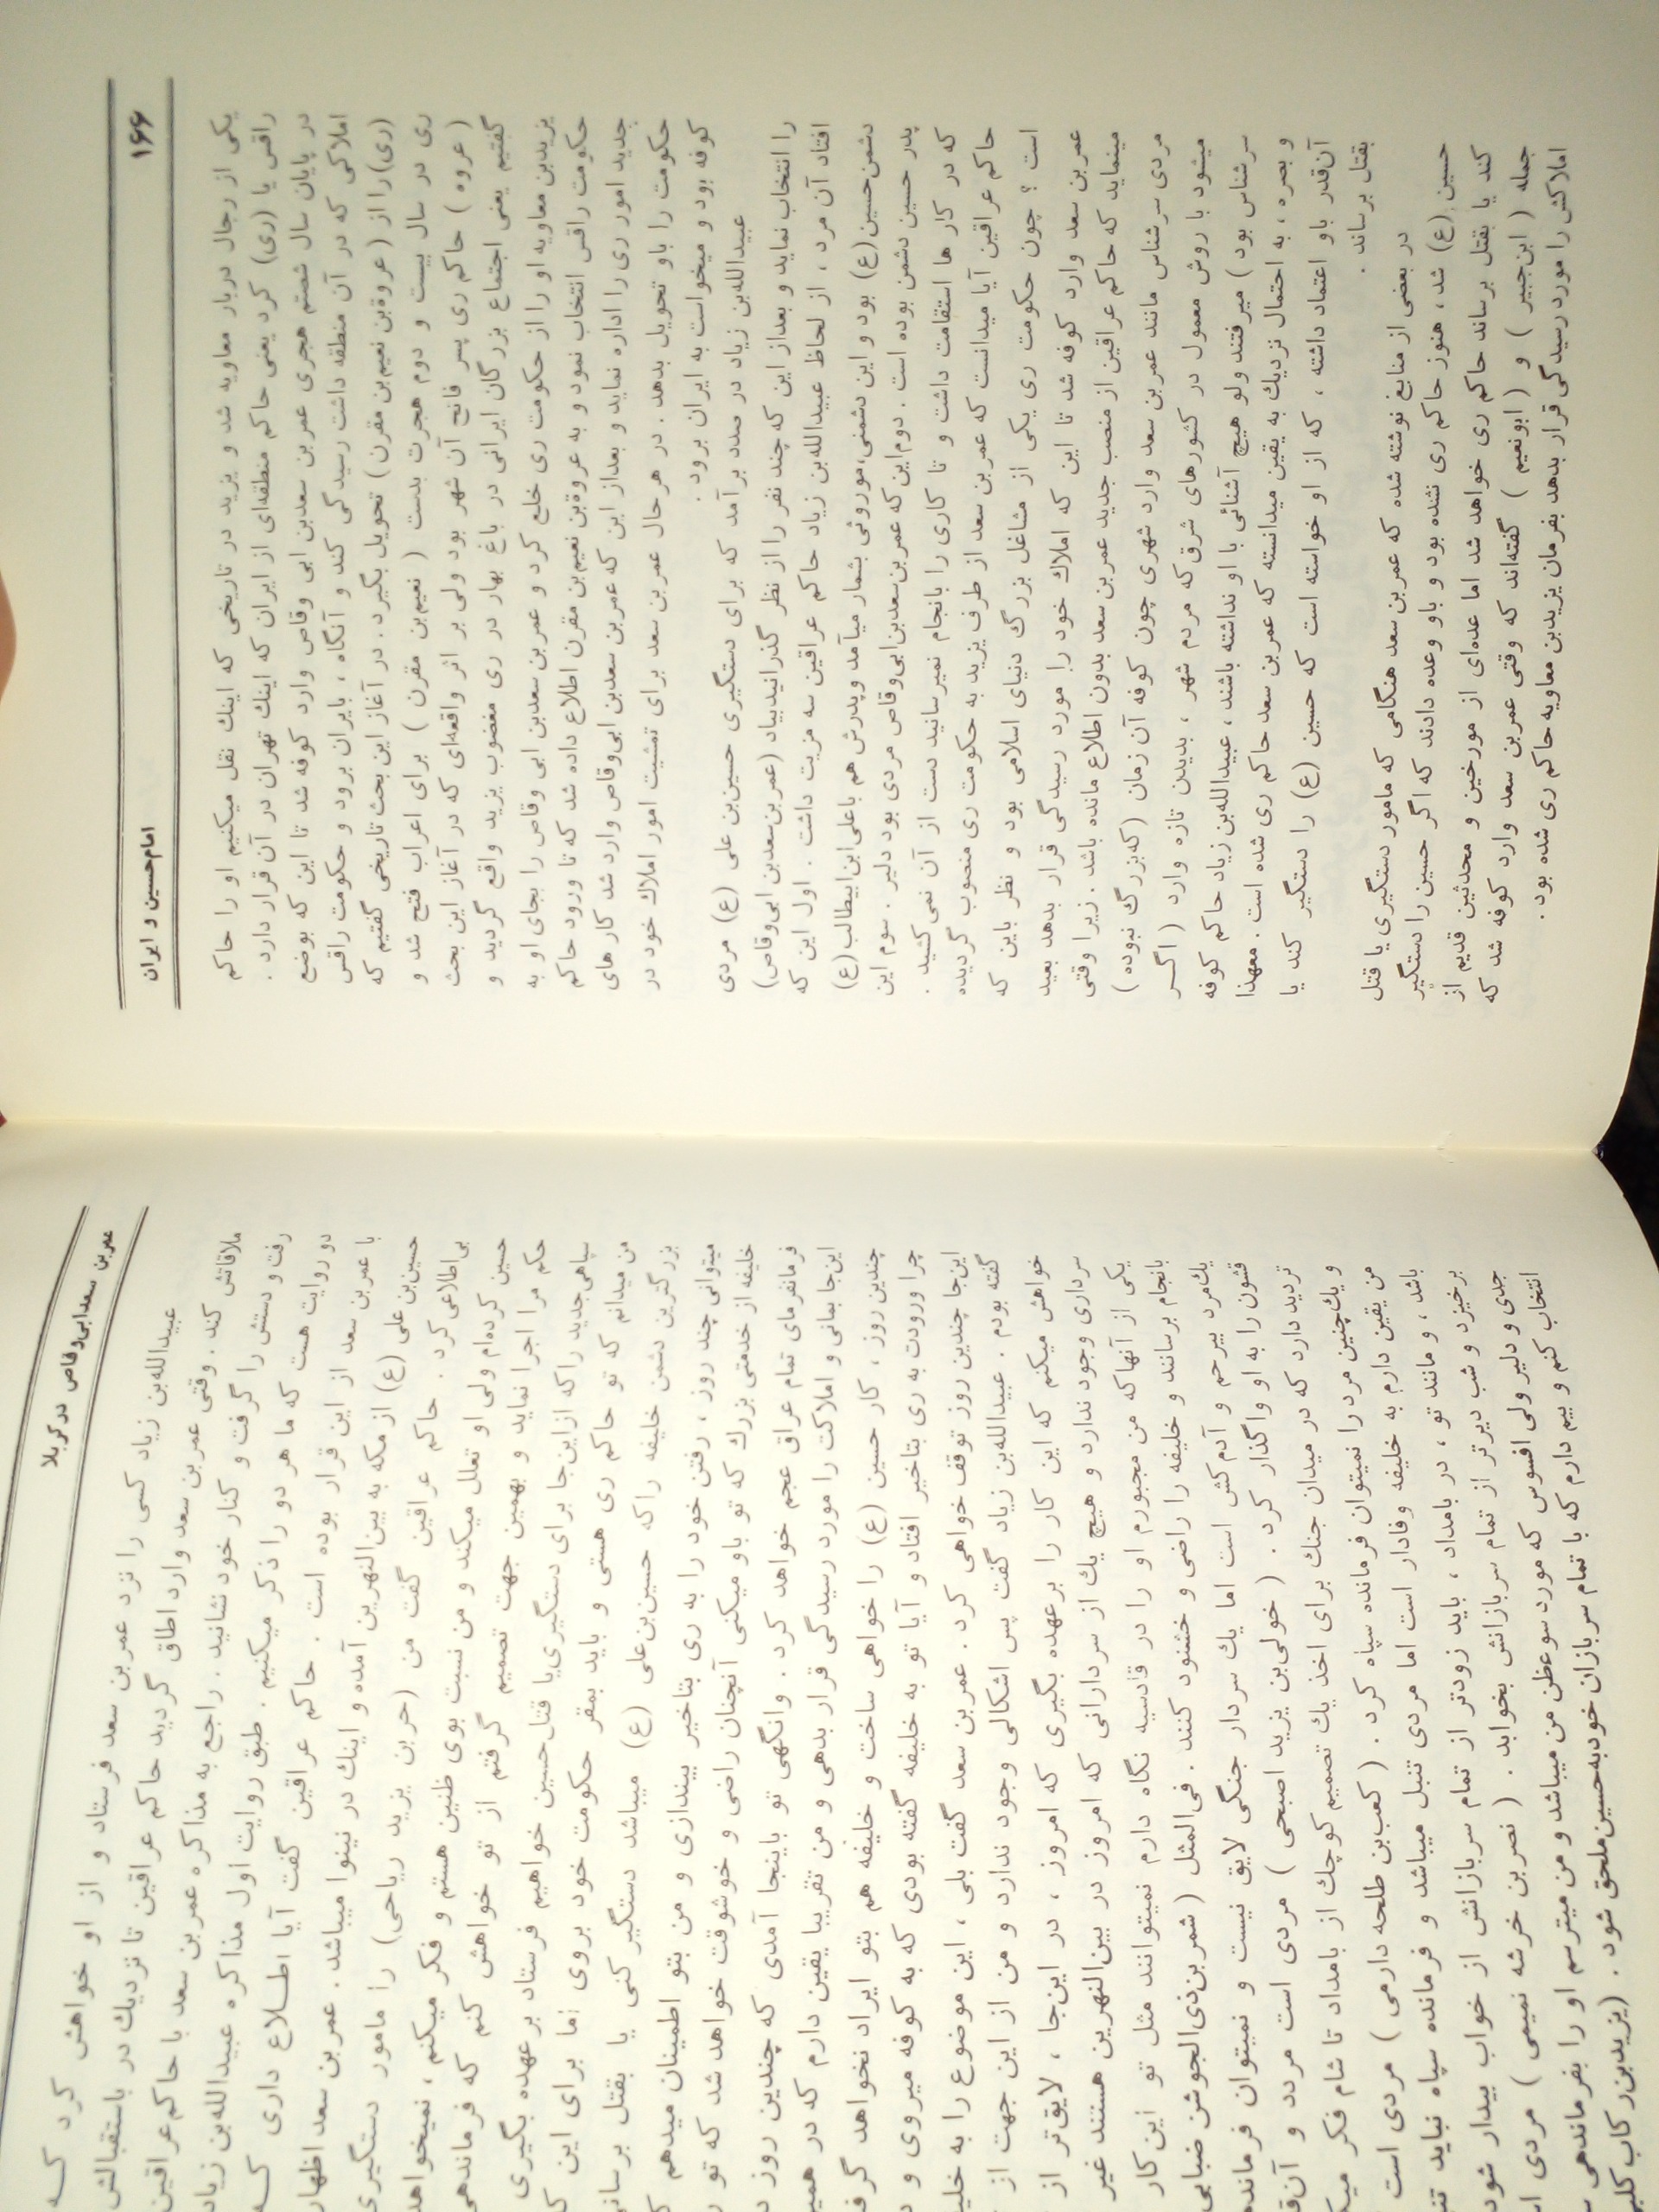 ۱۶۶ امام حسین و ایران
یکی از رجال دربار معاویه شد و یزید در تاریخی که اینك نقل میکنیم او را حاکم
راقس یا (ری) کرد یعنی حاکم منطقه‌ای از ایران که اینك تهران در آن قرار دارد .
در پایان سال شصتم هجری عمر بن سعدبن ابی وقاص وارد کوفه شد تا این که بوضع
املاکی که در آن منطقه داشت رسیدگی کند و آنگاه ، بایران برود و حکومت راقس
(ری) را از (عروةبن نعیم‌بن مقرن) تحویل بگیرد. در آغاز این بحث تاریخی گفتیم که
ری در سال بیست و دوم هجرت بدست ( نعیم‌بن مقرن ) برای اعراب فتح شد و
( عروه ) حاکم ری پسر فاتح آن شهر بود ولی بر اثر واقعه‌ای که در آغاز این بحث
گفتیم یعنی اجتماع بزرگان ایرانی در باغ بهار در ری مغضوب یزید واقع گردید و
یزیدبن معاویه او را از حکومت ری خلع کرد و عمربن سعدبن ابی وقاص را بجای او به
حکومت راقس انتخاب نمود و به عروةبن نعیم‌بن مقرن اطلاع داده شد که تا ورود حاکم
جدید امور ری را اداره نماید و بعداز این که عمربن سعدبن ابی‌وقاص وارد شد کار های
حکومت را باو تحویل بدهد. در هرحال عمربن سعد برای تمشیت امور املاك خود در
کوفه بود و میخواست به ایران برود .
عبیدالله‌بن زیاد در صدد برآمد که برای دستگیری حسین‌بن علی (ع) مردی
را انتخاب نماید و بعداز این که چند نفر را از نظر گذرانید بیاد (عمربن‌سعدبن ابی‌وقاص)
افتاد آن مرد ، از لحاظ عبیدالله‌بن زیاد حاکم عراقین سه مزیت داشت . اول این که
دشمن‌حسین(ع) بود و این دشمنی،موروثی بشمار میآمد وپدرش هم باعلی‌ابن‌ابیطالب(ع)
پدر حسین دشمن بوده است . دوم‌این‌که عمربن‌سعدبن‌ابی‌وقاص مردی بود دلیر . سوم این
که در کار ها استقامت داشت و تا کاری را بانجام نمیرسانید دست از آن نمی‌کشید .
حاکم عراقین آیا میدانست که عمربن سعد از طرف یزید به حکومت ری منصوب گردیده
است ؟ چون حکومت ری یکی از مشاغل بزرگ دنیای اسلامی بود و نظر باین که
عمربن سعد وارد کوفه شد تا این که املاك خود را مورد رسیدگی قرار بدهد بعید
مینماید که حاکم عراقین از منصب جدید عمربن سعد بدون اطلاع مانده باشد . زیرا وقتی
مردی سرشناس مانند عمربن سعد وارد شهری چون کوفه آن زمان (که‌بزرگ نبوده )
میشود با روش معمول در کشورهای شرق که مردم شهر ، بدیدن تازه وارد ( اگر
سرشناس بود ) میرفتند ولو هیچ آشنائی با او نداشته باشند ، عبیدالله‌بن زیاد حاکم کوفه
و بصره ، به احتمال نزدیك به یقین میدانسته که عمربن سعد حاکم ری شده است . معهذا
آن‌قدر باو اعتماد داشته ، که از او خواسته است که حسین (ع) را دستگیر کند یا
بقتل برساند .
در بعضی از منابع نوشته شده که عمربن سعد هنگامی که مامور دستگیری یا قتل
حسین (ع) شد ، هنوز حاکم ری نشده بود و باو وعده دادند که اگر حسین را دستگیر
کند یا بقتل برساند حاکم ری خواهد شد اما عده‌ای از مورخین و محدثین قدیم از
جمله ( ابن‌جبیر ) و ( ابونعیم ) گفته‌اند که وقتی عمربن سعد وارد کوفه شد که
املاکش را مورد رسیدگی قرار بدهد بفرمان یزیدبن معاویه حاکم ری شده بود .
عمربن سعدابی‌وقاص در کربلا
عبیدالله‌بن زیاد کسی را نزد عمربن سعد فرستاد و از او خواهش کرد که
ملاقاتش کند . وقتی عمربن سعد وارد اطاق گردید حاکم عراقین تا نزدیك در باستقبالش
رفت و دستش را گرفت و کنار خود نشانید . راجع به مذاکره عمربن سعد با حاکم‌عراقین
دو روایت هست که ما هر دو را ذکر میکنیم . طبق روایت اول مذاکره عبیدالله‌بن زیاد
با عمربن سعد از این قرار بوده است . حاکم عراقین گفت آیا اطلاع داری که
حسین‌بن علی (ع) از مکه به بین‌النهرین آمده و اینك در نینوا میباشد . عمربن سعد اظهار
بی‌اطلاعی کرد . حاکم عراقین گفت من (حربن یزید ریاحی) را مامور دستگیری
حسین کرده‌ام ولی او تعلل میکند و من نسبت بوی ظنین هستم و فکر میکنم ، نمیخواهد
حکم مرا اجرا نماید و بهمین جهت تصمیم گرفتم از تو خواهش کنم که فرماندهی
سپاهی‌جدید را که ازاین‌جا برای دستگیری یا قتل حسین خواهیم فرستاد برعهده بگیری
من میدانم که تو حاکم ری هستی و باید بمقر حکومت خود بروی اما برای این
بزرگترین دشمن خلیفه را که حسین‌بن‌علی (ع) میباشد دستگیر کنی یا بقتل برسانی
میتوانی چند روز ، رفتن خود را به ری بتاخیر بیندازی و من بتو اطمینان میدهم
خلیفه از خدمتی بزرك که تو باو میکنی آنچنان راضی و خوشوقت خواهد شد که تو را
فرمانفرمای تمام عراق عجم خواهد کرد . وانگهی تو باینجا آمدی که چندین روز
این‌جا بمانی و املاکت را مورد رسیدگی قرار بدهی و من تقریبا یقین دارم که در
چندین روز ، کار حسین (ع) را خواهی ساخت و خلیفه هم بتو ایراد نخواهد
چرا ورودت به ری بتاخیر افتاد و آیا تو به خلیفه گفته بودی که به کوفه میروی و
این‌جا چندین روز توقف خواهی کرد . عمربن سعد گفت بلی ، این موضوع را به
گفته بودم . عبیدالله‌بن زیاد گفت پس اشکالی وجود ندارد و من از این جهت از
خواهش میکنم که این کار را برعهده بگیری که امروز ، در این‌جا ، لایق‌تر از
سرداری وجود ندارد و هیچ یك از سردارانی که امروز در بین‌النهرین هستند غیر
یکی از آنها که من مجبورم او را در قادسیه نگاه دارم نمیتوانند مثل تو این کار
بانجام برسانند و خلیفه را راضی و خشنود کنند . فی‌المثل (شمربن‌ذی‌الجوشن ضبابی
یك‌مرد بیرحم و آدم‌کش است اما یك سردار جنگی لایق نیست و نمیتوان فرماندهی
قشون را به او واگذار کرد . ( خولی‌بن یزید اصبحی ) مردی است مردد و
تردید دارد که در میدان جنك برای اخذ یك تصمیم کوچك از بامداد تا شام فکر
و یك‌چنین مرد را نمیتوان فرمانده سپاه کرد . ( کعب‌بن طلحه دارمی ) مردی است
من یقین دارم به خلیفه وفادار است اما مردی تنبل میباشد و فرمانده سپاه نباید
باشد ، و مانند تو ، در بامداد ، باید زودتر از تمام سربازانش از خواب بیدار شود
برخیزد و شب دیرتر از تمام سربازانش بخوابد . ( نصربن خرشه نمیمی ) مردی
جدی و دلیر ولی افسوس که مورد سوءظن من میباشد و من میترسم او را بفرماندهی
انتخاب کنم و بیم دارم که با تمام سربازان خود به حسین ملحق شود . (یزیدبن‌رکاب